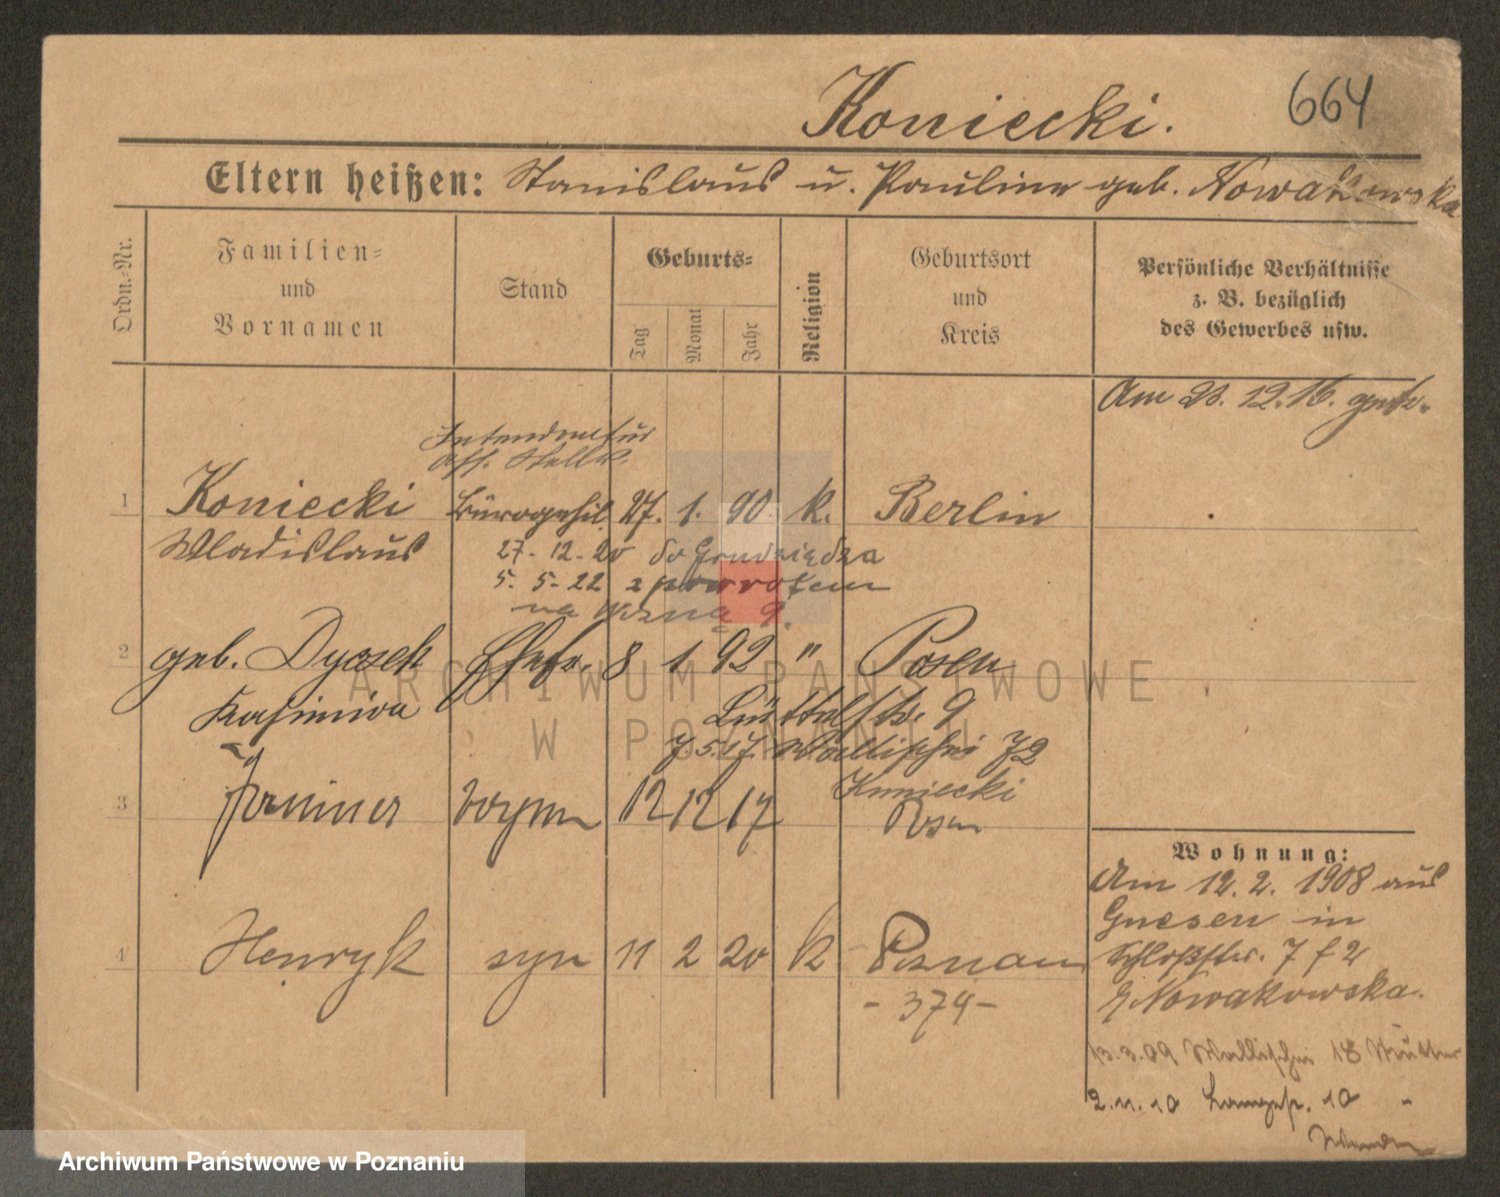 Koniecki. 664
Eltern heißen: Stanislaus u. Pauline geb. Nowakowska
Ordn.-Nr.
Familien-
und
Vornamen
Stand
Geburts-
Tag
Monat
Jahr
Religion
Geburtsort
und
Kreis
Persönliche Verhältnisse
z. B. bezüglich
des Gewerbes usw.
Am 23. 12. 16. getr.
Intendantur
1 Koniecki Bürogehil. 27. 1. 90. k. Berlin
Wladislaus
27-12-20 do Grudziądza
5. 5-22 z powrotem
na 9.
2 geb. Ehefr. 8 1 92 " Posen
Kasimira
9
7.5.17. Wallischei 72
Koniecki
3 Janina 12 12 17 Posen
Wohnung:
Am 12. 2. 1908 aus
Gnesen in
Schloßstr. 7 f 2
Nowakowska.
4 Henryk syn 11 2 20 k Poznań
- 374 -
13.3.09 Wallischei 18 Mutter
2.11.10 10 "
ARCHIWUM PAŃSTWOWE
W POZNANIU
Archiwum Państwowe w Poznaniu